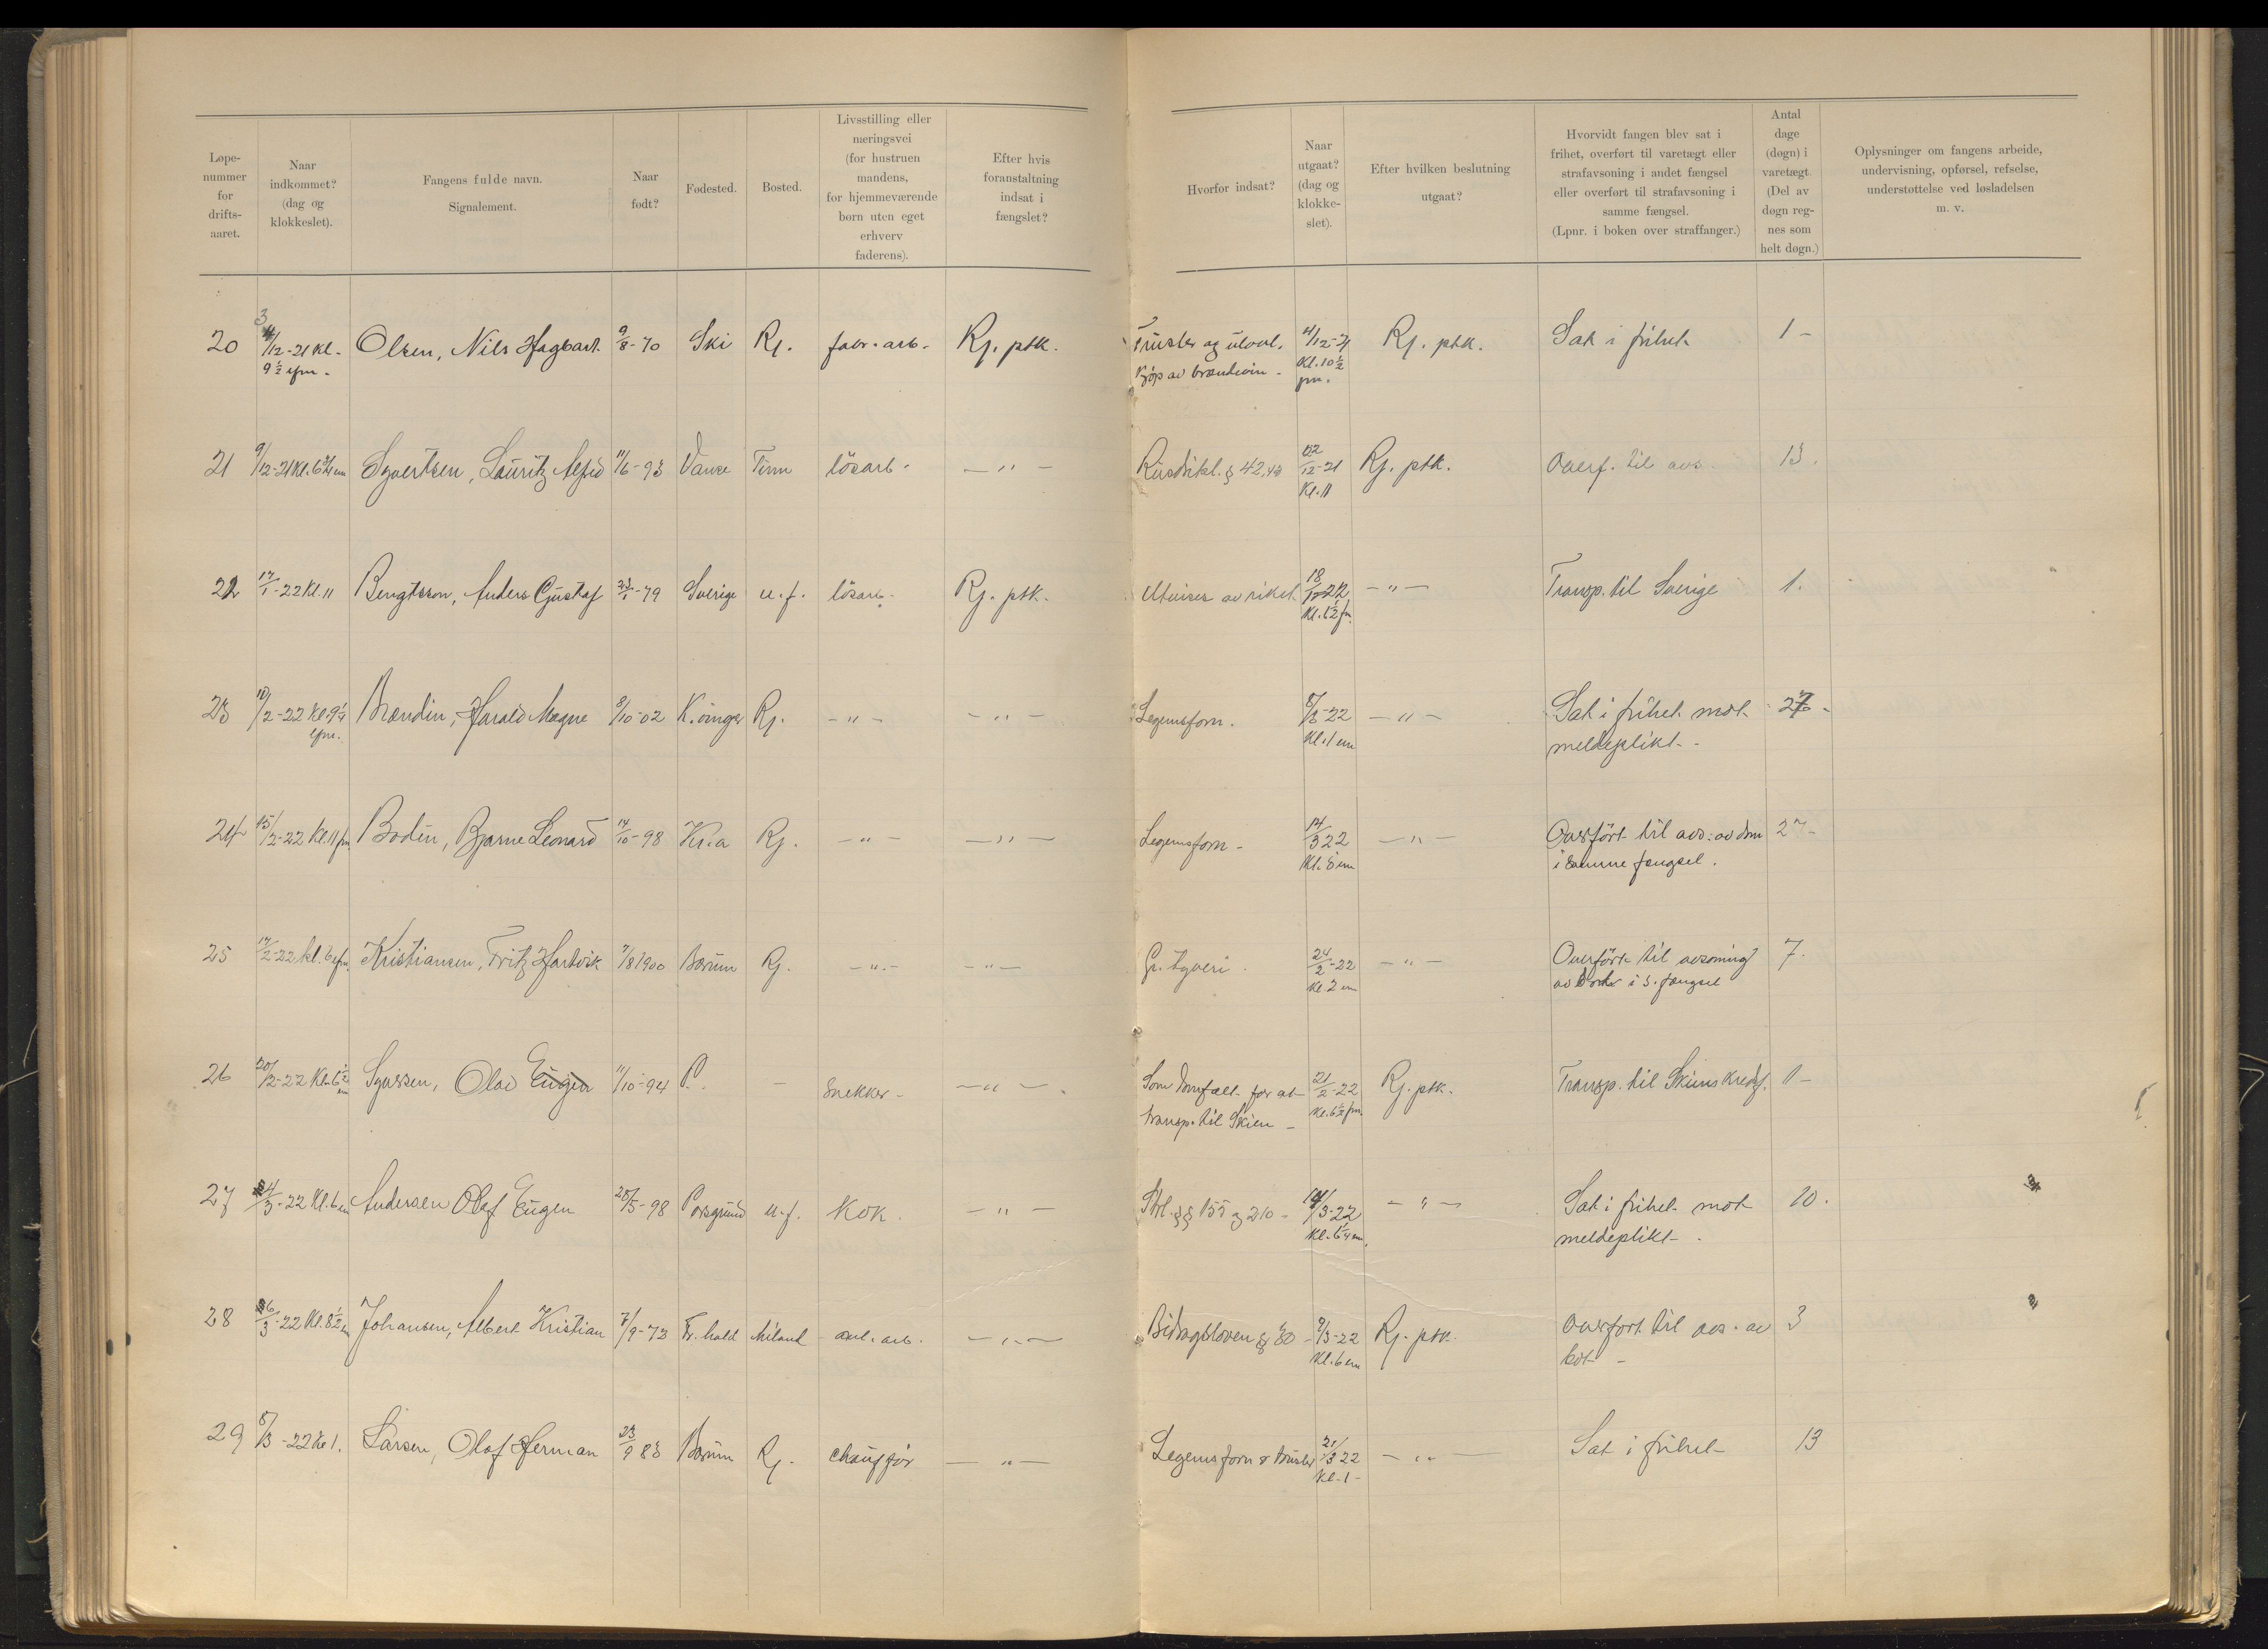 Løpe-
nummer
for
drifts-
aaret.
Naar
indkommet?
(dag og
klokkeslet).
Fangens fulde navn.
Signalement.
Naar
født?
Fødested.
Bosted.
Livsstilling eller
næringsvei
(for hustruen
mandens,
for hjemmeværende
børn uten eget
erhverv
faderens).
Efter hvis
foranstaltning
indsat i
fængslet?
Hvorfor indsat?
Naar
utgaat?
(dag og
klokke-
slet).
Efter hvilken beslutning
utgaat?
Hvorvidt fangen blev sat i
frihet, overført til varetægt eller
strafavsoning i andet fængsel
eller overført til strafavsoning i
samme fængsel.
(Lpnr. i boken over straffanger.)
Antal
dage
(døgn) i
varetægt.
(Del av
døgn reg-
nes som
helt døgn.)
Oplysninger om fangens arbeide,
undervisning, opførsel, refselse,
understøttelse ved løsladelsen
m. v.
20 3/12-21 Kl. Olsen, Nils Hagbart 9/8-70 Ski Rj. fabr. arb. Rj. ptk. Trusler og ulovl. 4/12-21 Rj. ptk. Sat i frihet 1 -
9 1/2 efm. Kjöp av brændevin - Kl. 10 1/2
fm.
21 9/12-21 Kl. 6 3/4 em Syvertsen, Lauritz Alfred 11/6-93 Vanse Tinn lösarb. - " - Rusdrikl. § 42,43 22/12-21 Rj. ptk. Overf. til avs. 13.
Kl. 11
22 17/1-22 Kl. 11 Bengtsson, Anders Gustaf 23/1-79 Sverige u.f. lösarb. Rj. ptk. Utvises av riket 18/1-22 - " - Transp. til Sverige 1.
Kl. 6 1/2 fm.
23 10/2-22 Kl. 9 1/4 Brændin, Harald Magne 9/10-02 K.vinger Rj. - " - - " - Legemsforn. 8/3-22 - " - Sat i frihet mot 27 -
efm. Kl. 1 em meldeplikt -
24 15/2-22 Kl. 11 fm Bodin, Bjarne Leonard 14/10-98 Kr.a Rj. - " - - " - Legemsforn - 14/3 22 - " - Overført til avs. av dom 27 -
Kl. 5 em i samme fængsel.
25 17/2-22 kl. 6 efm. Kristiansen, Fritz Hartvik 7/8 1900 Bærum Rj. - " - - " - Gr. tyveri. 24/2-22 - " - Overført til avsoning 7.
Kl. 2 em av i s. fængsel
26 20/2-22 Kl. 6 1/2 Syversen, Olav Eugen 11/10-94 P. - Snekker - - " - Som domfælt for at 21/2-22 Rj. ptk. Transp. til Skiens Kredsf. 1 -
em transp. til Skien - Kl. 6 1/2 fm
27 4/3-22 Kl. 6 em Andersen Olaf Eugen 28/5-98 Porsgrund u.f. Kok. - " - Strl. §§ 155 og 210 - 14/3-22 - " - Sat i frihet mot 10.
Kl. 6 1/4 em. meldeplikt -
28 6/3-22 Kl. 8 1/2 em Johansen, Albert Kristian 7/9-73 Fr.hald Miland anl. arb. - " - Bidragsloven § 30 - 9/3-22 Rj. ptk. Overført til avs. av 3
Kl. 6 em bot -
29 8/3-22 Kl 1. Larsen, Olaf Herman 23/9 83 Bærum Rj. chauffør - " - Legemsforn & trusler 21/3 22 - " - Sat i frihet 13
Kl. 1 -